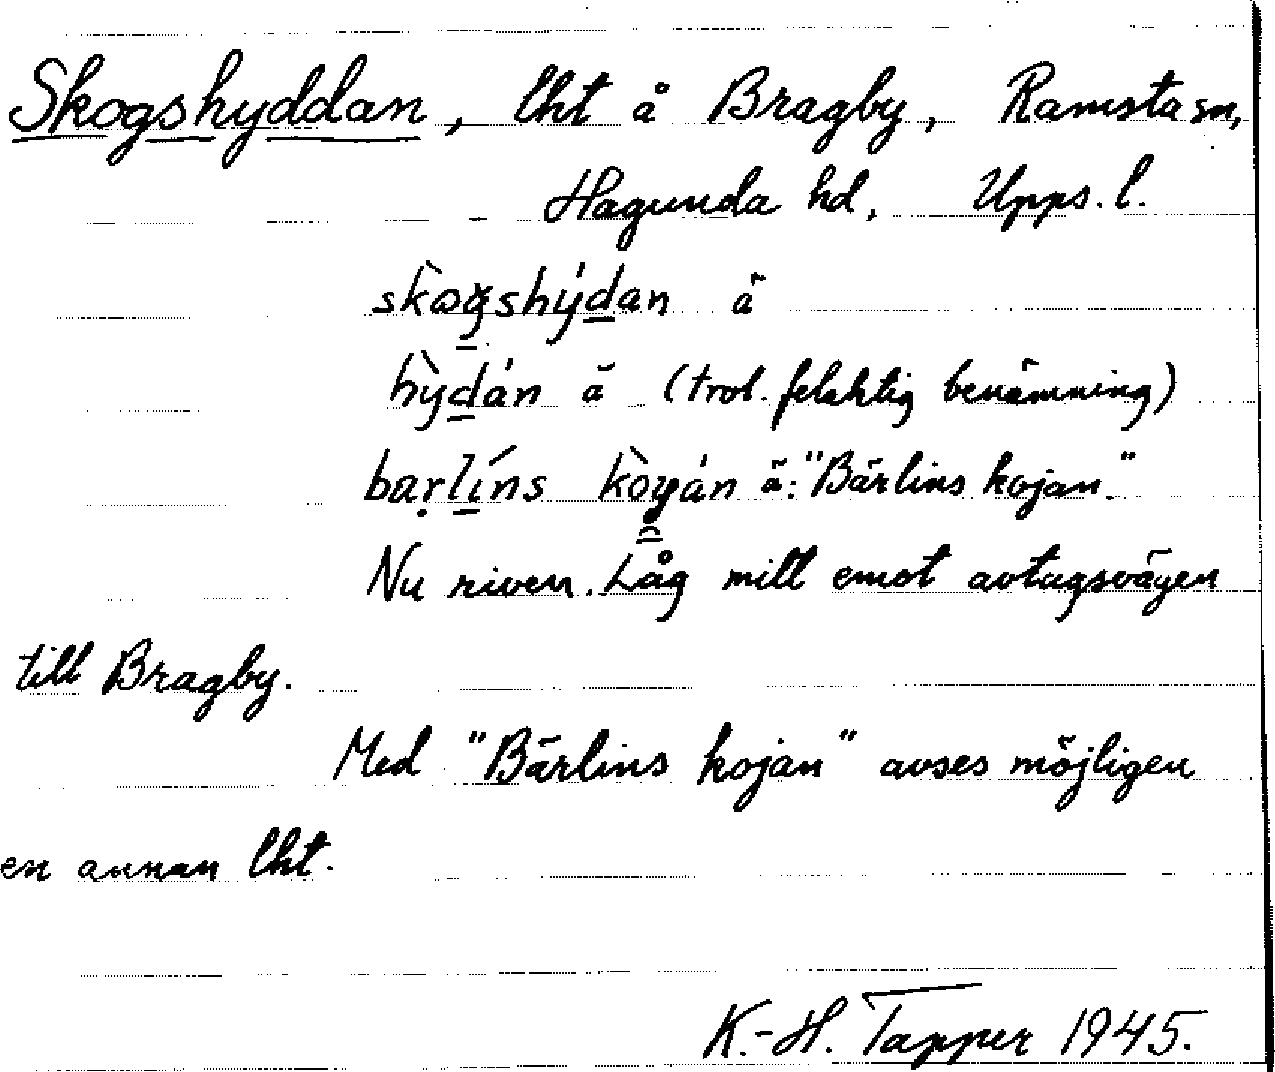 Skogshyddan, lht å Bragby, Ramsta sn,
Hagunda hd, Upps. l.
skògshýdan ä
hỳdán ä (trol. felaktig benämning)
barlíns kòyán ä: "Bärlins kojan"
Nu riven. Låg mitt emot avtagsvägen
till Bragby.
Med "Bärlins kojan" avses möjligen
en annan lht.
K.-H. Tapper 1945.